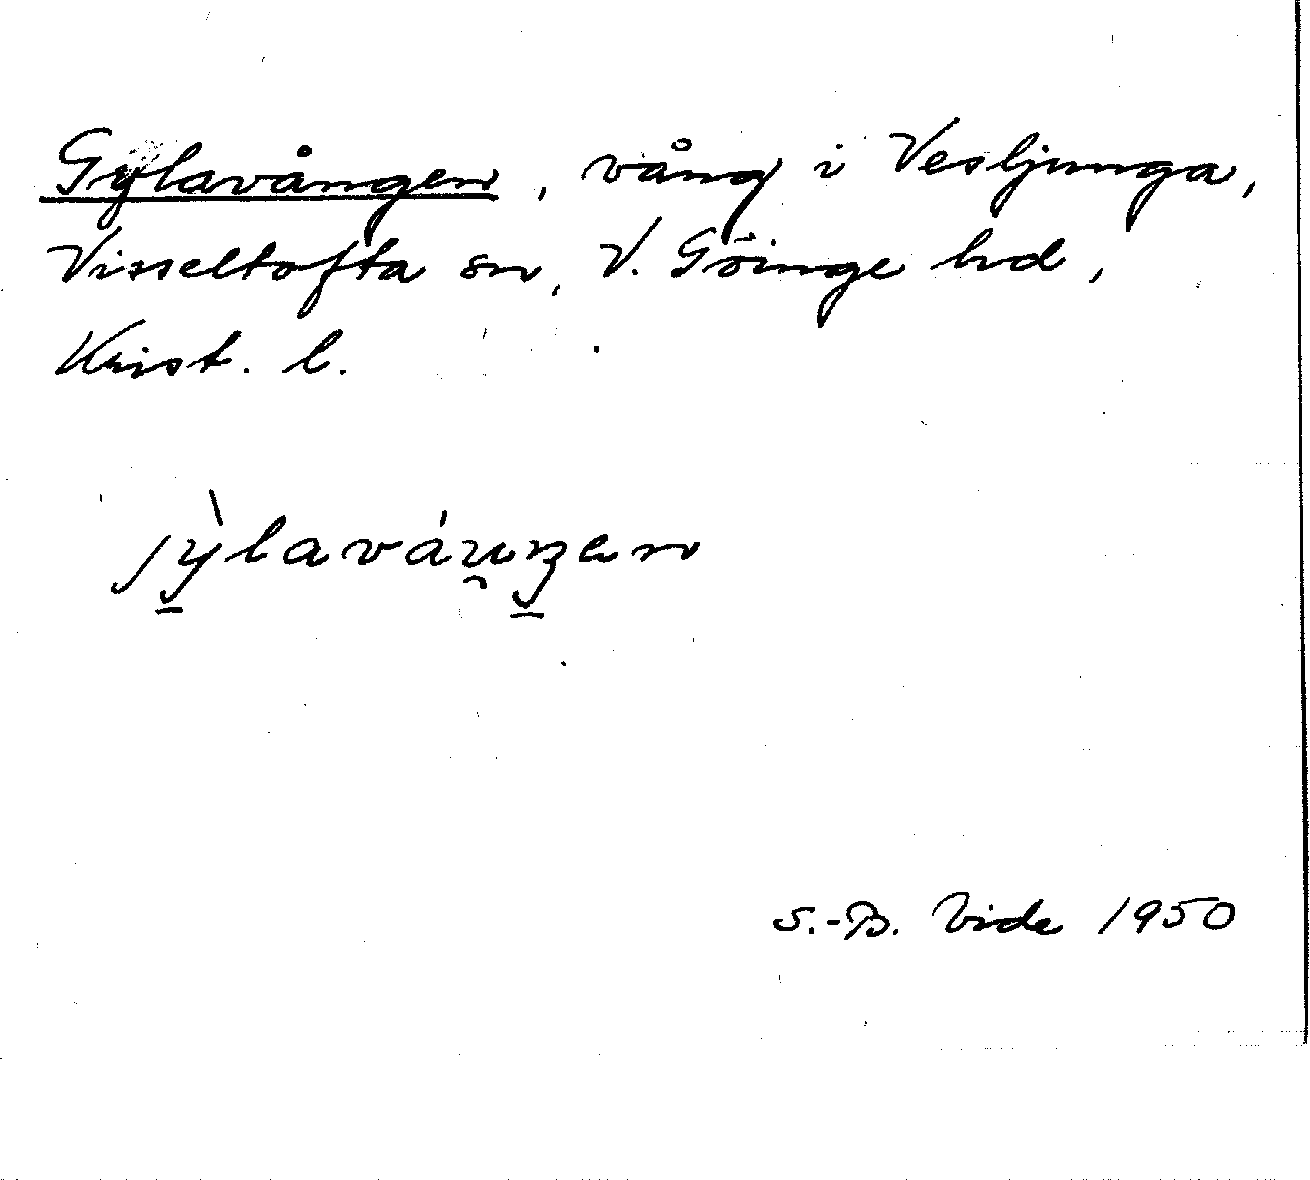 Gylavången, vång i Vesljunga,
Visseltofta sn, V. Göinge hd,
Krist. l.
jỳ̠laváu̯ŋ̠en
S.-B. Vide 1950